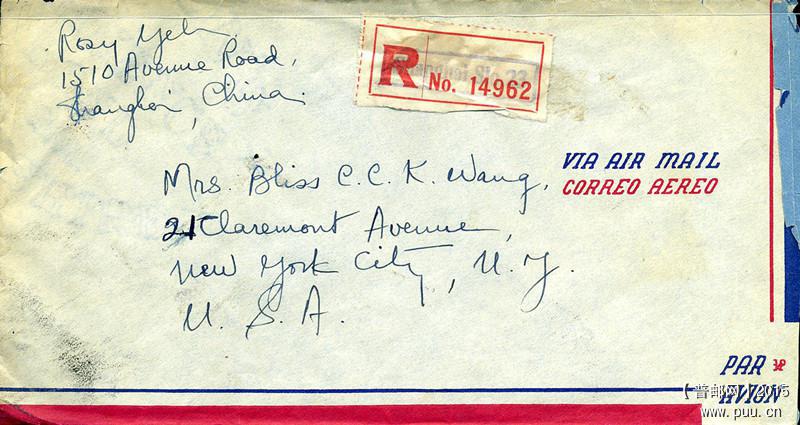 Rosy Yeh
1510 Avenue Road,
Shanghai, China.
R
No. 14962
VIA AIR MAIL
CORREO AEREO
Mrs. Bliss C. C. K. Wang,
21 Claremont Avenue,
New York City, N. Y.
U. S. A.
PAR
AVION
【普邮网】2015
www.puu.cn